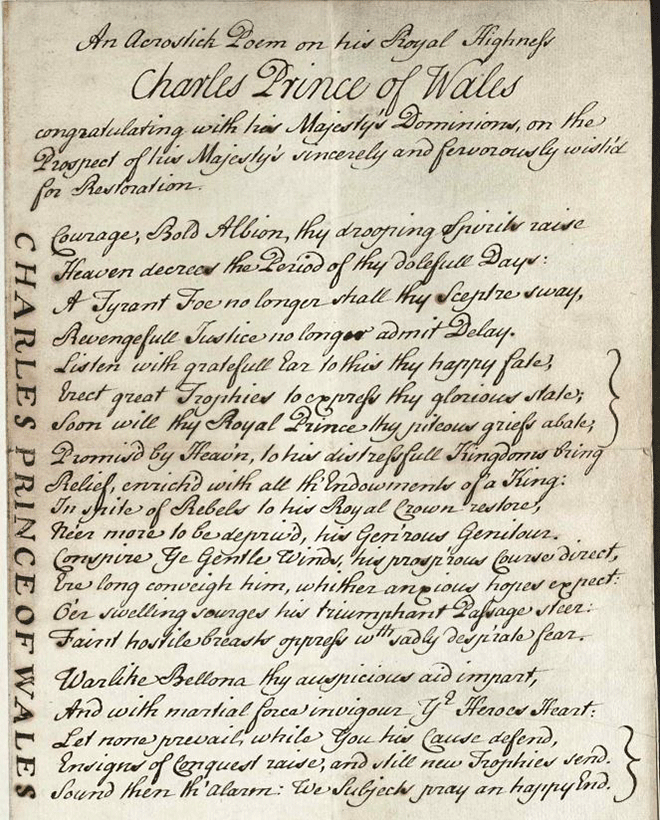 An Acrostick Poem on his Royal Highness
Charles Prince of Wales
congratulating with his Majesty's Dominions, on the
Prospect of his Majesty's sincerely and fervorously wish'd
for Restoration.
Courage, Bold Albion, thy drooping Spirits raise
Heaven decrees the Period of thy dolefull Days:
A Tyrant Foe no longer shall thy Sceptre sway,
Revengefull Justice no longer admit Delay.
Listen with gratefull Ear to this thy happy fate,
Erect great Trophies to express thy glorious state;
Soon will thy Royal Prince thy piteous griefs abate;
Promis'd by Heav'n, to his distressfull Kingdoms bring
Relief, enrich'd with all th'Endowments of a King:
In spite of Rebels to his Royal Crown restore,
Ne'er more to be depriv'd, his Gen'rous Genitour.
Conspire Ye Gentle Winds, his prosp'rous Course direct,
Ere long conveigh him, whither anxious hopes expect:
O'er swelling sourges his triumphant Passage steer:
Faint hostile breasts oppress wth sadly desp'rate fear.
Warlike Bellona thy auspicious aid impart,
And with martial force invigour Ye Heroes Heart:
Let none prevail, while You his Cause defend,
Ensigns of Conquest raise, and still new Trophies send.
Sound then th'Alarm: We Subjects pray an happy End.
CHARLES PRINCE OF WALES